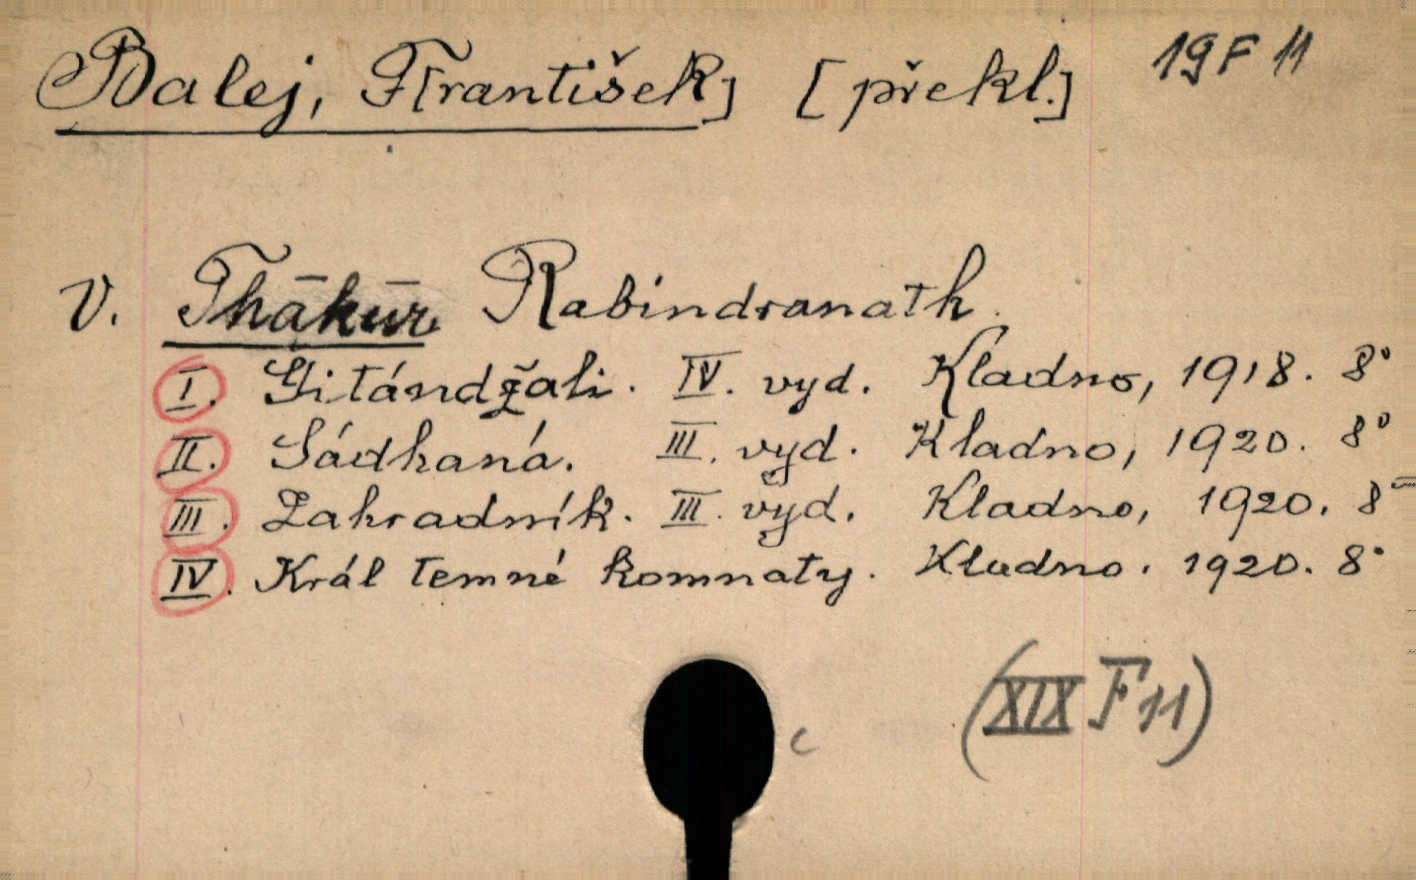 Balej, F[rantišek] [překl.] 19 F 11
V. Thākūr Rabindranath.
I. Gitándžali. IV. vyd. Kladno, 1918. 8°
II. Sádhaná. III. vyd. Kladno, 1920. 8°
III. Zahradník. III. vyd. Kladno, 1920. 8°
IV. Král temné komnaty. Kladno. 1920. 8°
c (XIX F 11)